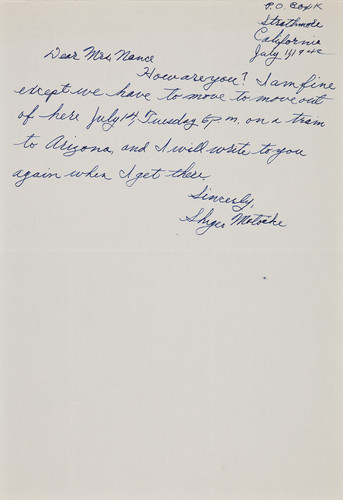 P.O. Box K
Strathmore
California
July 11, 1942
Dear Mrs. Nance
How are you? I am fine
except we have to move to move out
of here July 14, Tuesday 6 p.m. on a train
to Arizona, and I will write to you
again when I get there.
Sincerely,